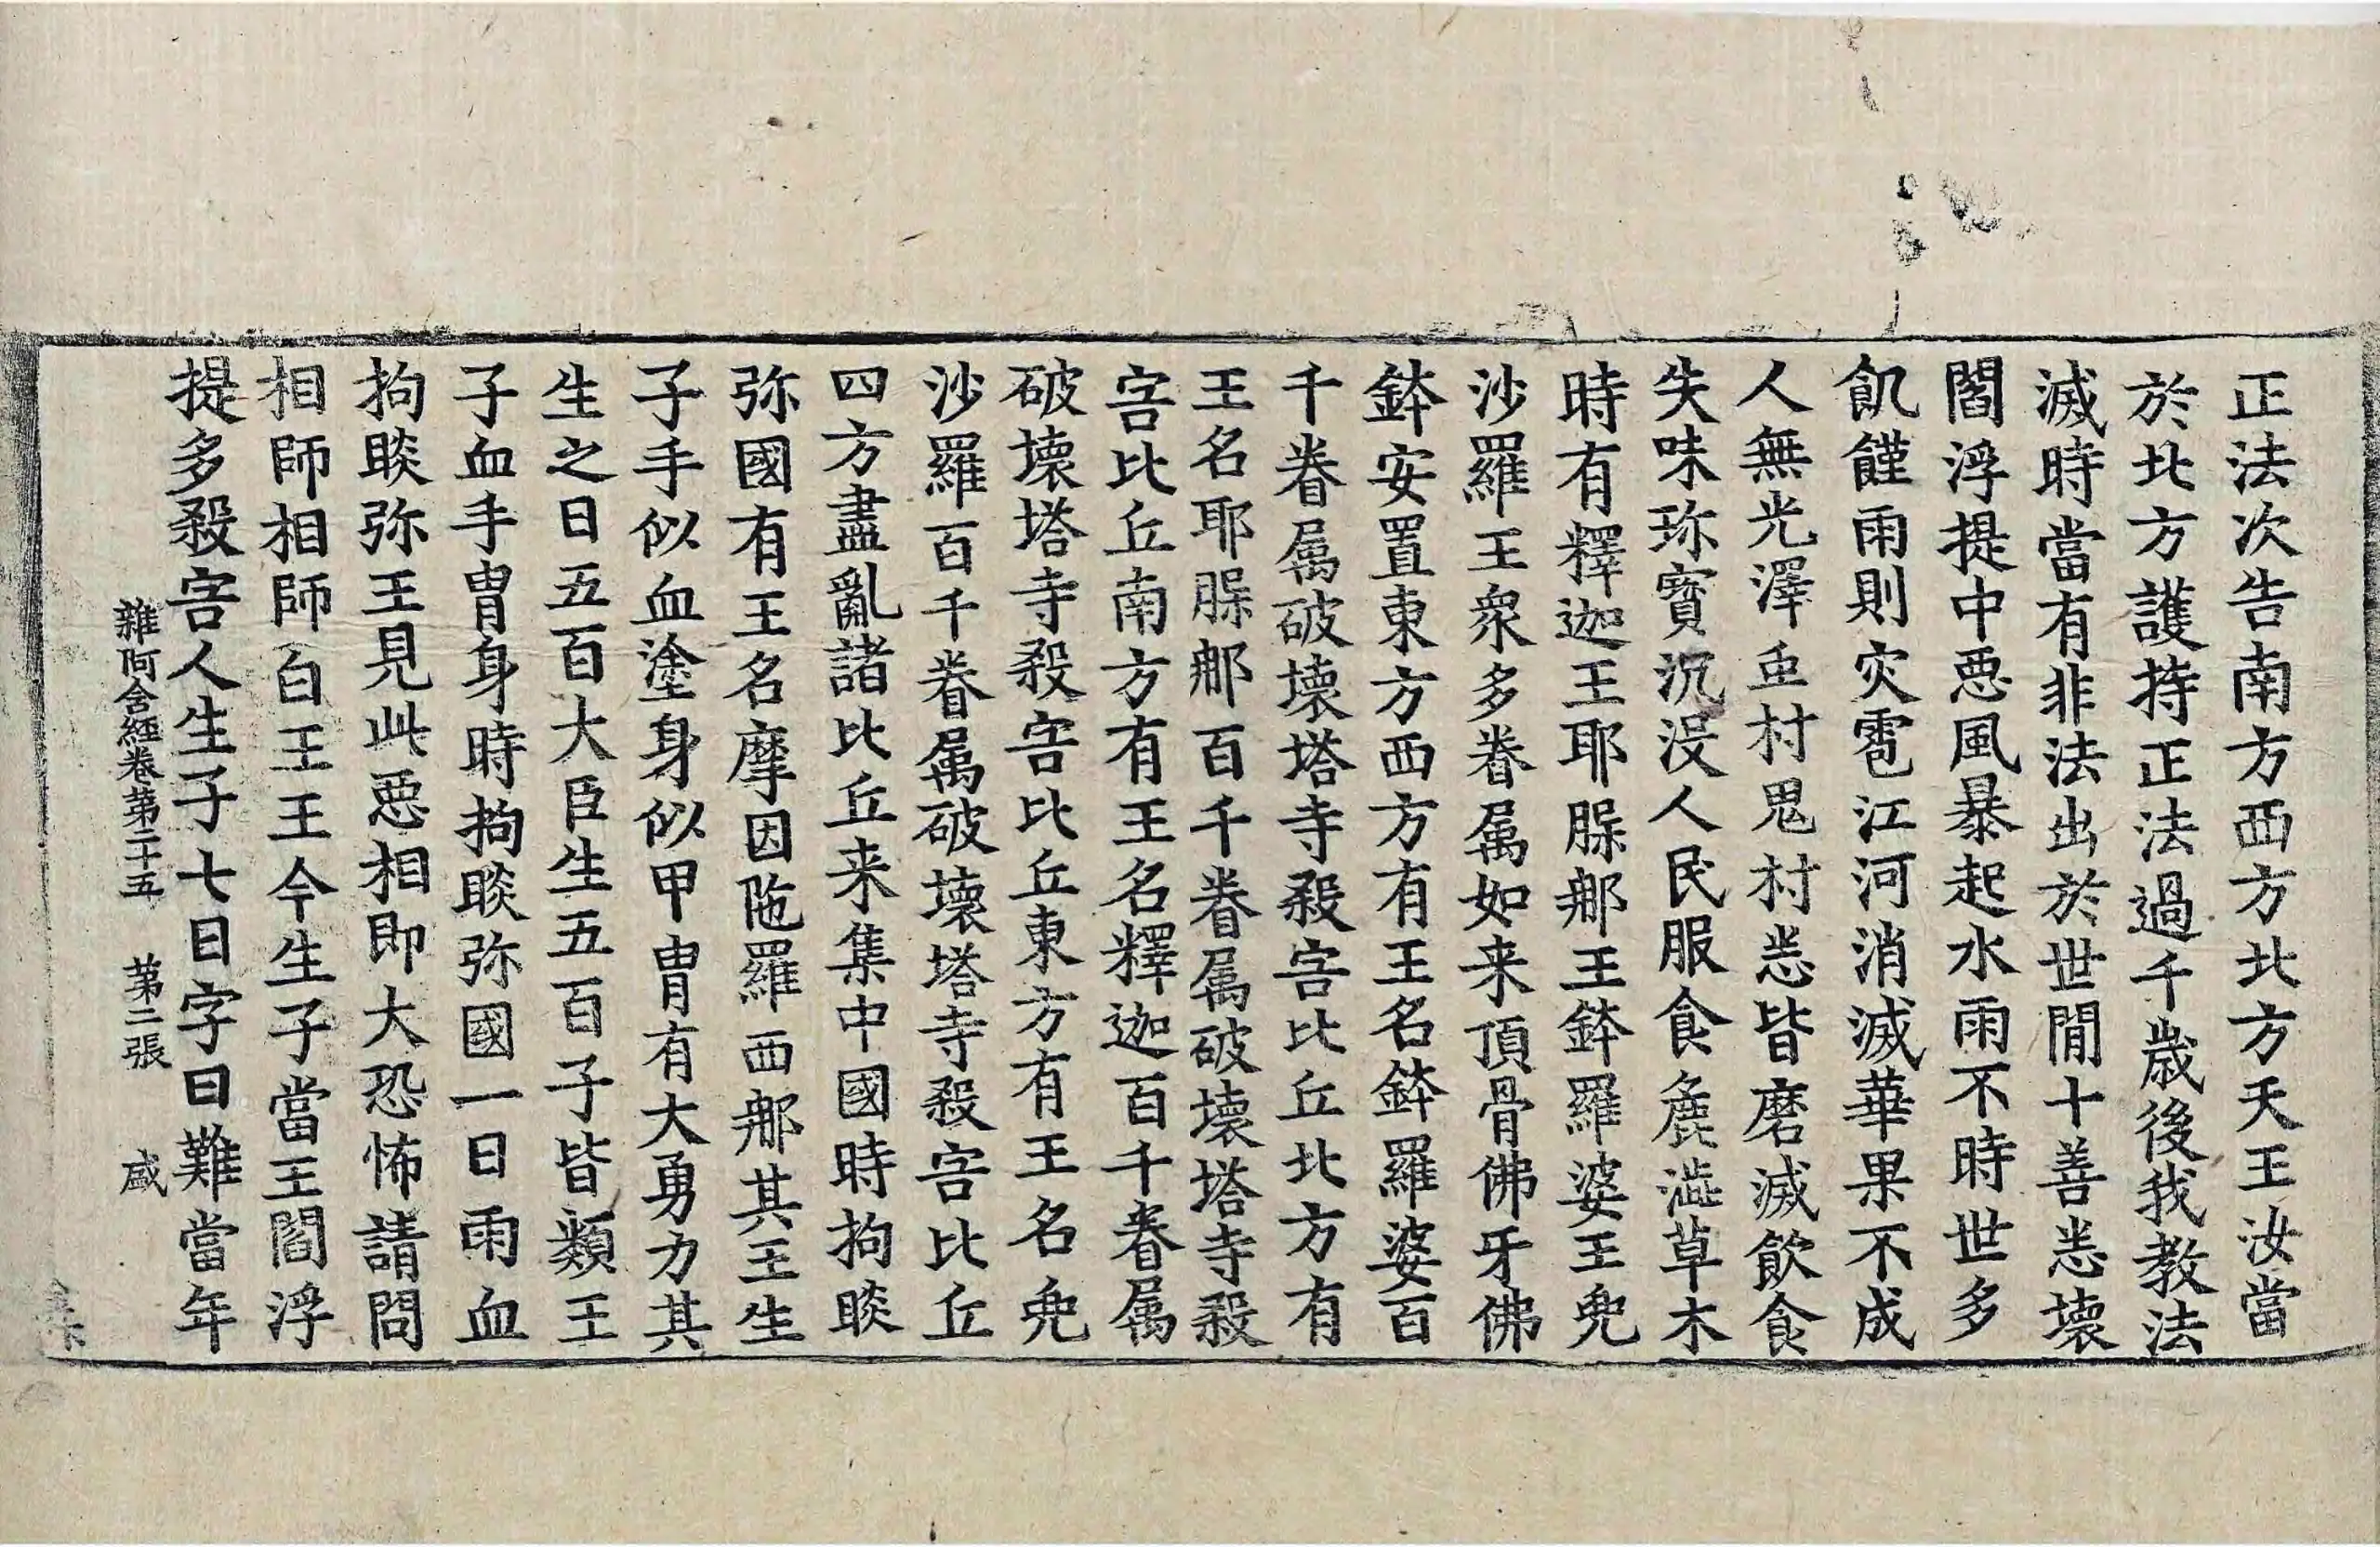 正法次告南方西方北方天王汝當
於北方護持正法過千歲後我教法
滅時當有非法出於世閒十善悉壞
閻浮提中惡風暴起水雨不時世多
飢饉雨則灾雹江河消滅華果不成
人無光澤虫村鬼村悉皆磨滅飲食
失味珎寶沉没人民服食麁澁草木
時有釋迦王耶賖那王鉢羅婆王兜
沙羅王衆多眷属如来頂骨佛牙佛
鉢安置東方西方有王名鉢羅婆百
千眷属破壞塔寺殺害比丘北方有
王名耶賖那百千眷属破壞塔寺殺
害比丘南方有王名釋迦百千眷属
破壞塔寺殺害比丘東方有王名兜
沙羅百千眷属破壞塔寺殺害比丘
四方盡亂諸比丘来集中國時拘睒
弥國有王名摩因陁羅西那其王生
子手似血塗身似甲胄有大勇力其
生之日五百大臣生五百子皆類王
子血手胄身時拘睒弥國一日雨血
拘睒弥王見此惡相即大恐怖請問
相師相師白王王今生子當王閻浮
提多殺害人生子七日字曰難當年
雜阿含經卷第二十五　第二張　盛